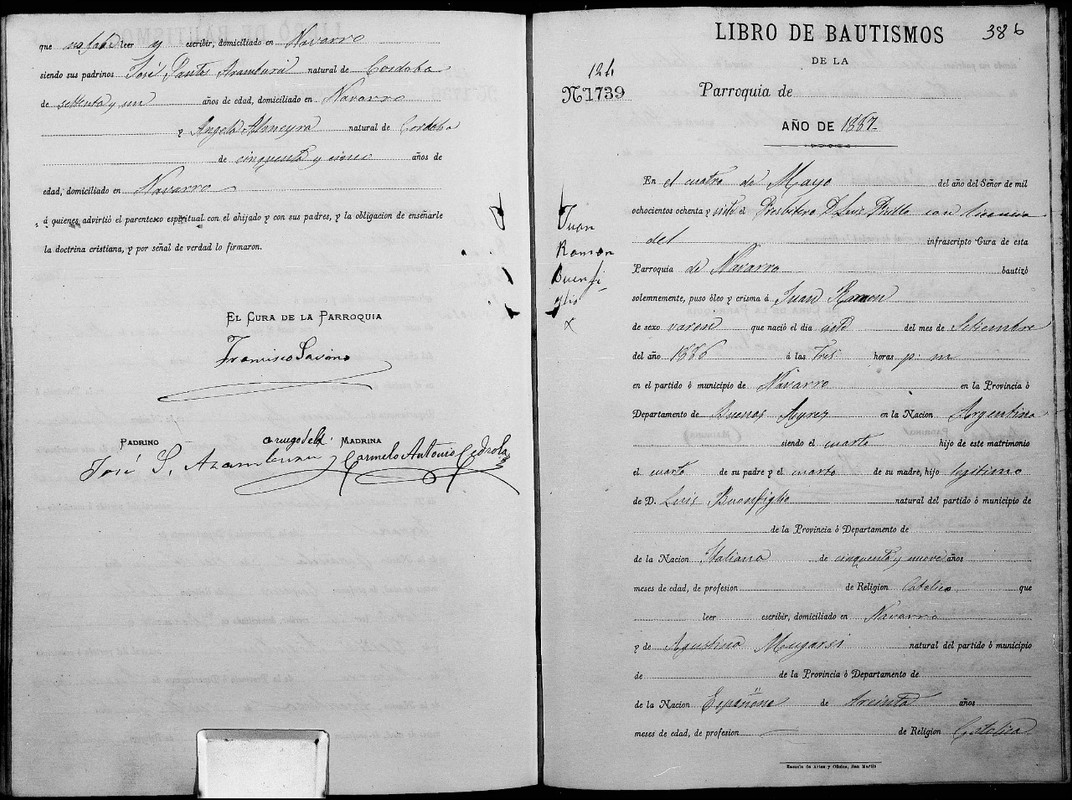 que no sabe leer y escribir, domiciliado en Navarro
siendo sus padrinos José Santos Aramburú natural de Cordoba
de setenta y un años de edad, domiciliado en Navarro
y Angela natural de Cordoba
de cincuenta y cinco años de
edad, domiciliado en Navarro
á quienes advirtió el parentesco espiritual con el ahijado y con sus padres, y la obligacion de enseñarle
la doctrina cristiana, y por señal de verdad lo firmaron.
EL CURA DE LA PARROQUIA
Francisco Savino
PADRINO a ruego de la MADRINA
José S. Carmelo Antonio Cedrola
LIBRO DE BAUTISMOS 386
DE LA
126
Nº 1739 Parroquia de
AÑO DE 1887
En el cuatro de Mayo del año del Señor de mil
ochocientos ochenta y siete el Presbitero D. Luis con licencia
del infrascripto Cura de esta
Parroquia de Navarro bautizó
solemnemente, puso óleo y crisma á Juan Ramon
de sexo varon que nació el dia del mes de Setiembre
del año 1886 á las tres horas p. m
en el partido ò municipio de Navarro en la Provincia ò
Departamento de Buenos Ayres en la Nacion Argentina
siendo el cuarto hijo de este matrimonio
el cuarto de su padre y el cuarto de su madre, hijo legitimo
de D. Luis Buonfiglio natural del partido ò municipio de
de la Provincia ò Departamento de
de la Nacion Italiana de cincuenta y nueve años
meses de edad, de profesion de Religion Catolica que
leer escribir, domiciliado en Navarro
y de Agustina Mugarsi natural del partido ò municipio
de de la Provincia ò Departamento de
de la Nacion Española de treinta años
meses de edad, de profesion de Religion Catolica
Juan
Ramon
Buonfi-
glio
x
Escuela de Artes y Oficios, San Martin